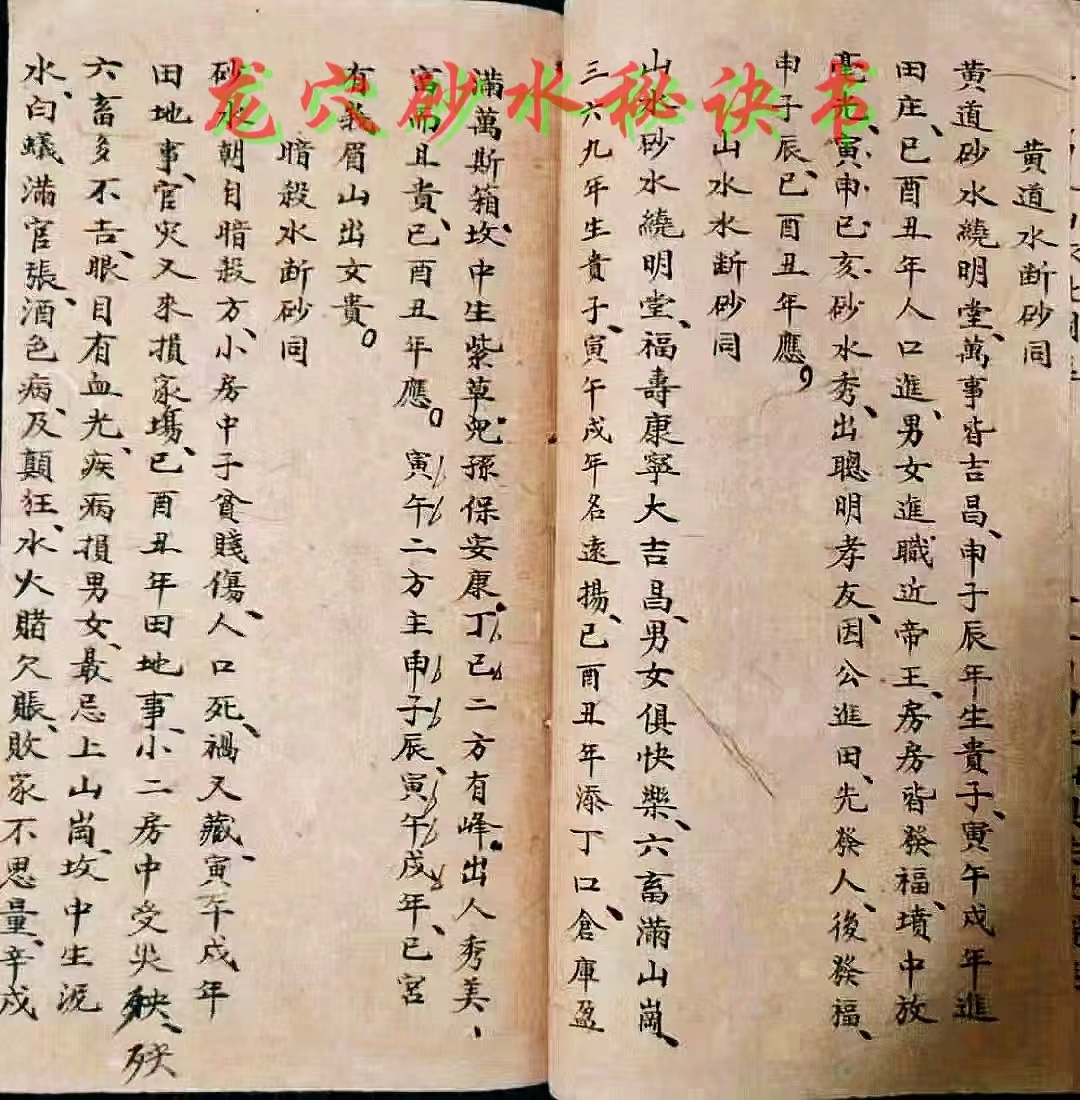 龙穴砂水秘诀书
黄道水断砂同
黄道砂水繞明堂、萬事皆吉昌、申子辰年生貴子、寅午戌年進
田庄、巳酉丑年人口進、男女進職近帝王、房房皆發福、墳中放
毫光、寅申巳亥砂水秀、出聰明孝友、因公進田、先發人、後發福、
申子辰、巳酉丑年應，
山水水断砂同
山水砂水繞明堂、福壽康寧大吉昌、男女俱快樂、六畜滿山崗、
三六九年生貴子、寅午戌年名遠揚、巳酉丑年添丁口、倉庫盈
滿萬斯箱、坟中生紫草、兒孫保安康、丁巳二方有峰、出人秀美、
富而且貴、巳酉丑年應。寅午二方主申子辰、寅午戌年、巳宮
有蛾眉山出女貴。
暗殺水断砂同
砂水朝自暗殺方、小房中子貧賤傷、人口死、禍又藏、寅午戌年
田地事、官灾又來損家塲、巳酉丑年田地事、小二房中受灾秧、殃
六畜多不吉、眼目有血光、疾病損男女、最忌上山崗、坟中生泥
水、白蟻滿官張、酒色病、及顛狂、水火賭欠賬、敗家不思量、辛戌